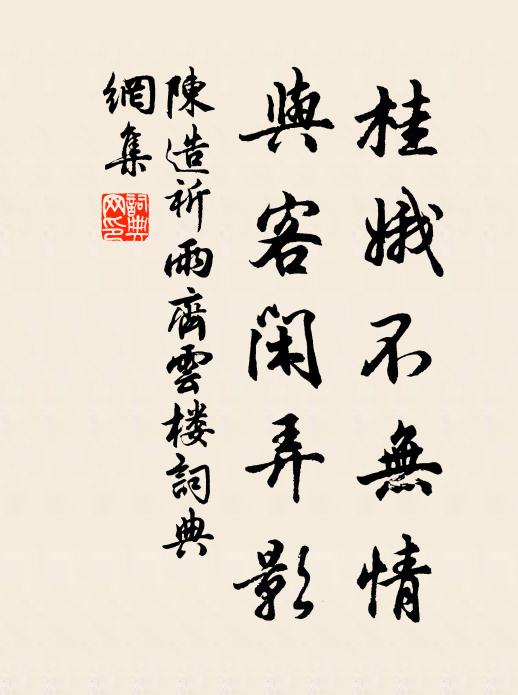 桂娥不無情
與客閑弄影
陳造祈雨齊雲樓詞典
網集
詞典
网印